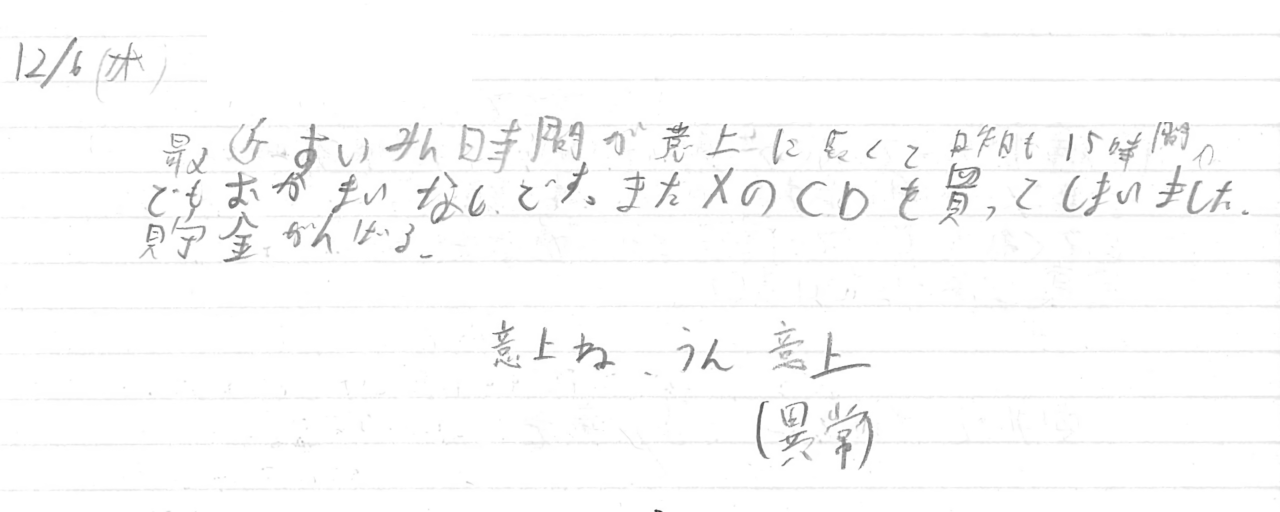 12/6(木)
最近すいみん時間が意上に長くて昨日も15時間。
でもおかまいなしです。またXのCDを買ってしまいました。
貯金がんばる。
意上ね、うん 意上
(異常)